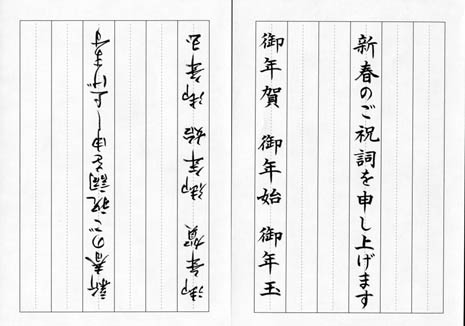 新春のご祝詞を申し上げます
御年賀 御年始 御年玉
新春のご祝詞を申し上げます
御年賀 御年始 御年玉